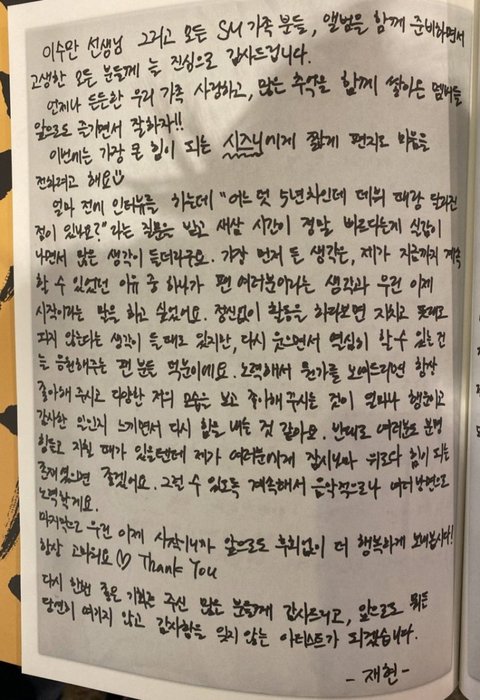 이수만 선생님 그리고 모든 SM 가족 분들, 앨범을 함께 준비하면서
고생한 모든 분들께 늘 진심으로 감사드립니다.
언제나 든든한 우리 가족 사랑하고, 많은 추억을 함께 쌓아온 멤버들
앞으로도 즐기면서 잘하자!!
이번에는 가장 큰 힘이 되는 시즈니에게 짧게 편지로 마음을
전하려고 해요☺
얼마 전에 인터뷰를 하는데 "어느덧 5년차인데 데뷔 때랑 달라진
점이 있나요?" 라는 질문을 받고 새삼 시간이 정말 빠르다는게 실감이
나면서 많은 생각이 들더라구요. 가장 먼저 든 생각은, 제가 지금까지 계속
할 수 있었던 이유 중 하나가 팬 여러분이라는 생각과 우린 이제
시작이라는 말을 하고 싶었어요. 정신없이 활동을 하다보면 지치고 뜻대로
되지 않는다는 생각이 들 때도 있지만, 다시 웃으면서 열심히 할 수 있는 건
늘 응원해주는 팬 분들 덕분이에요. 노력해서 뭔가를 보여드리면 항상
좋아해 주시고 다양한 저의 모습을 보고 좋아해주시는 것이 얼마나 행운이고
감사한 일인지 느끼면서 다시 힘을 내는 것 같아요. 반대로 여러분도 분명
힘들고 지칠 때가 있을텐데 제가 여러분에게 잠시나마 위로와 힘이 되는
존재였으면 좋겠어요. 그럴 수 있도록 계속해서 음악적으로나 여러 방면으로
노력할게요.
마지막으로 우린 이제 시작이니까 앞으로도 후회없이 더 행복하게 보내봅시다!
항상 고마워요♡ Thank You
다시 한번 좋은 기회를 주신 많은 분들께 감사드리고, 앞으로도 뭐든
당연히 여기지 않고 감사함을 잊지 않는 아티스트가 되겠습니다.
- 재현 -